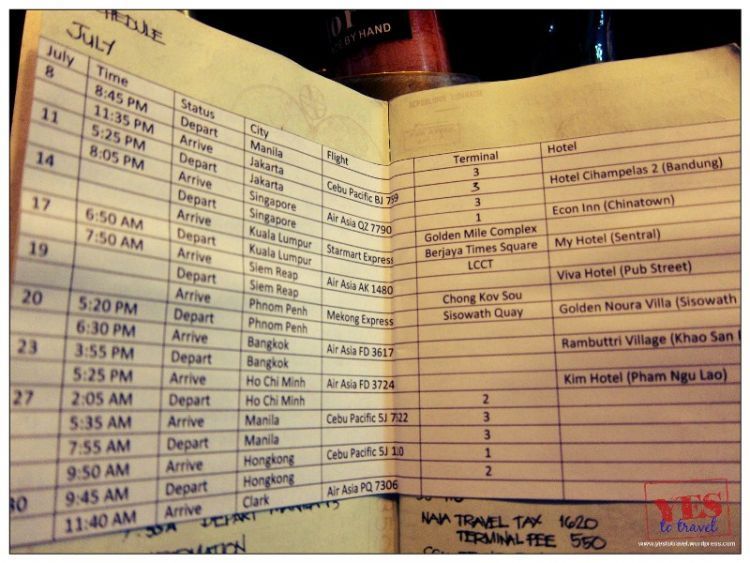 SCHEDULE
JULY
BY HAND
July Time Status City Flight Terminal Hotel
8 8:45 PM Depart Manila Cebu Pacific 3 Hotel Cihampelas 2 (Bandung)
11:35 PM Arrive Jakarta 3
11 5:25 PM Depart Jakarta Air Asia QZ 7790 3 Econ Inn (Chinatown)
8:05 PM Arrive Singapore 1
14 Depart Singapore Starmart Express Golden Mile Complex My Hotel (Sentral)
Arrive Kuala Lumpur Berjaya Times Square
17 6:50 AM Depart Kuala Lumpur Air Asia AK 1480 LCCT Viva Hotel (Pub Street)
7:50 AM Arrive Siem Reap
19 Depart Siem Reap Mekong Express Chong Kov Sou Golden Noura Villa (Sisowath
Arrive Phnom Penh Sisowath Quay
20 5:20 PM Depart Phnom Penh Air Asia FD 3617 Rambuttri Village (Khao San
6:30 PM Arrive Bangkok
23 3:55 PM Depart Bangkok Air Asia FD 3724 Kim Hotel (Pham Ngu Lao)
5:25 PM Arrive Ho Chi Minh
27 2:05 AM Depart Ho Chi Minh Cebu Pacific 5J 2
5:35 AM Arrive Manila 3
7:55 AM Depart Manila Cebu Pacific 5J 3
9:50 AM Arrive Hongkong 1
30 9:45 AM Depart Hongkong Air Asia PQ 7306 2
11:40 AM Arrive Clark
DEPART
NAIA TRAVEL TAX 1620
TERMINAL FEE 550
YES
to travel
www.yestotravel.wordpress.com